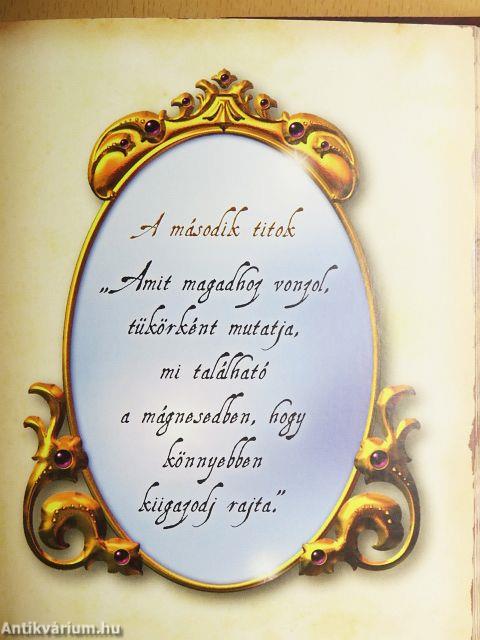 A második titok
„Amit magadhoz vonzol,
tükörként mutatja,
mi található
a mágnesedben, hogy
könnyebben
kiigazodj rajta."
Antikvárium.hu